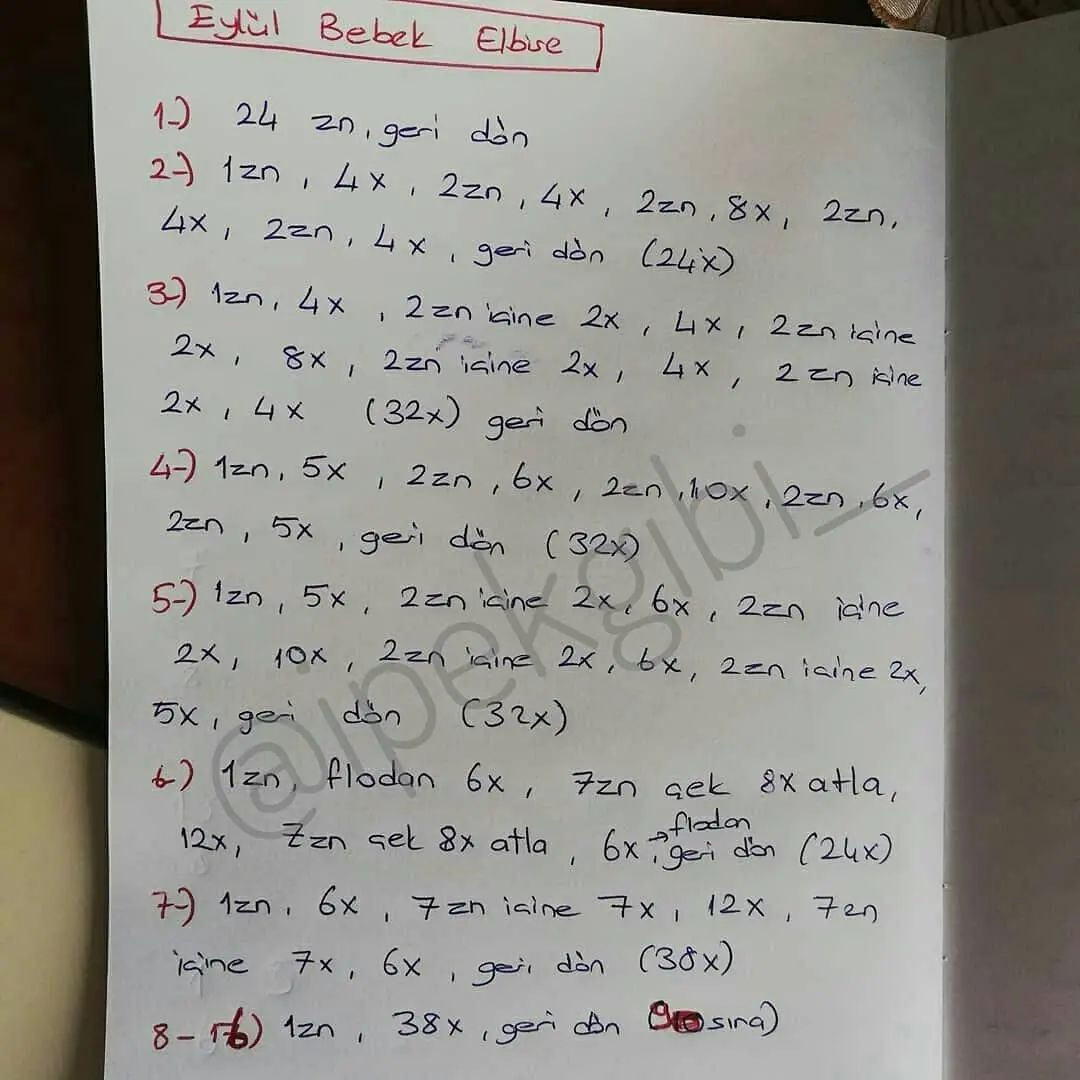 Eylül Bebek Elbise
1-) 24 zn, geri dön
2-) 1zn, 4x, 2zn, 4x, 2zn, 8x, 2zn,
4x, 2zn, 4x, geri dön (24x)
3-) 1zn, 4x, 2zn içine 2x, 4x, 2zn içine
2x, 8x, 2zn içine 2x, 4x, 2zn içine
2x, 4x (32x) geri dön
4-) 1zn, 5x, 2zn, 6x, 2zn, 10x, 2zn, 6x,
2zn, 5x, geri dön (32x)
5-) 1zn, 5x, 2zn içine 2x, 6x, 2zn içine
2x, 10x, 2zn içine 2x, 6x, 2zn içine 2x,
5x, geri dön (32x)
6-) 1zn, flodan 6x, 7zn çek 8x atla,
flodan
12x, 7zn çek 8x atla, 6x, → geri dön (24x)
7-) 1zn, 6x, 7zn içine 7x, 12x, 7zn
içine 7x, 6x, geri dön (38x)
8-16) 1zn, 38x, geri dön sıra)
@ipekgibi_